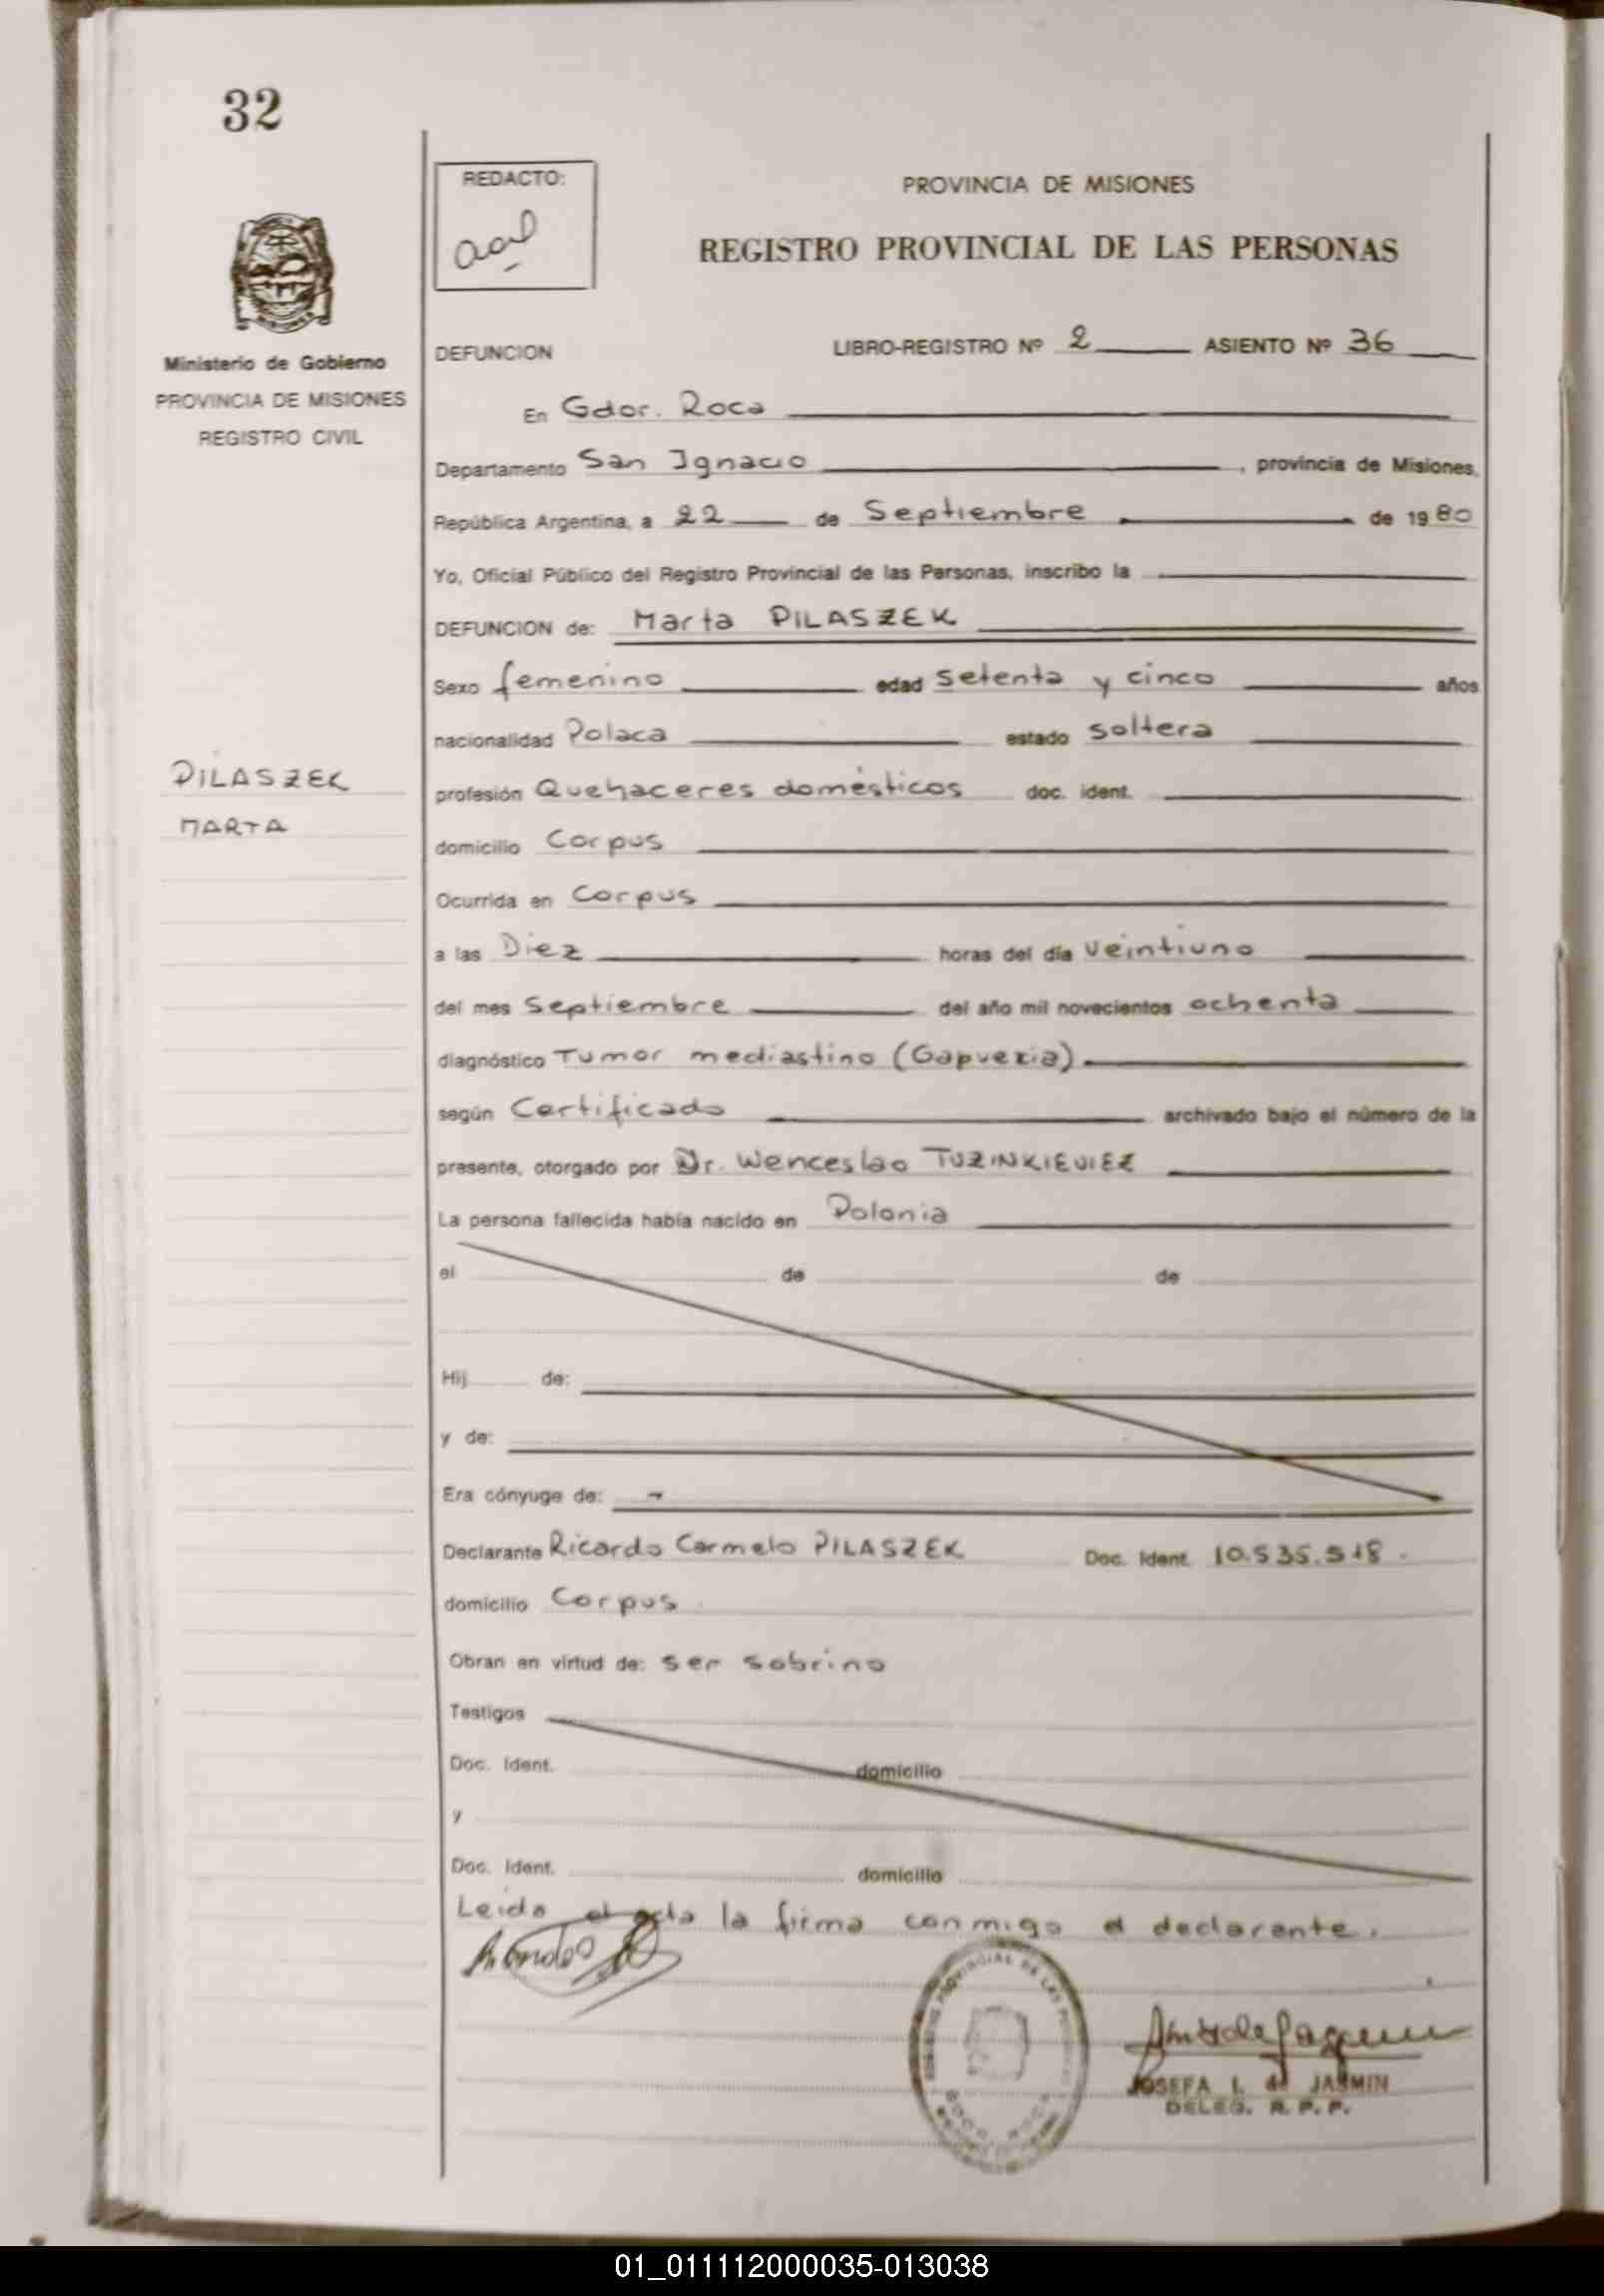 32
REDACTO:
PROVINCIA DE MISIONES
REGISTRO PROVINCIAL DE LAS PERSONAS
Ministerio de Gobierno
PROVINCIA DE MISIONES
REGISTRO CIVIL
DEFUNCION LIBRO-REGISTRO Nº 2 ASIENTO Nº 36
En Gdor. Roca
Departamento San Ignacio, provincia de Misiones,
República Argentina, a 22 de Septiembre de 1980
Yo, Oficial Público del Registro Provincial de las Personas, inscribo la
DEFUNCION de: Marta PILASZEK
Sexo femenino edad setenta y cinco años
nacionalidad Polaca estado soltera
PILASZEK
MARTA
profesión Quehaceres domésticos doc. ident.
domicilio Corpus
Ocurrida en Corpus
a las Diez horas del día veintiuno
del mes Septiembre del año mil novecientos ochenta
diagnóstico Tumor mediastino
según Certificado archivado bajo el número de la
presente, otorgado por Dr. Wenceslao TUZINKIEVIEZ
La persona fallecida había nacido en Polonia
el de de
Hij de:
y de:
Era cónyuge de: -
Declarante Ricardo Carmelo PILASZEK Doc. Ident. 10.535.518.
domicilio Corpus
Obran en virtud de: ser sobrino
Testigos
Doc. Ident. domicilio
y
Doc. Ident. domicilio
Leida el acta la firma conmigo el declarante.
JOSEFA I. de JASMIN
DELEG. R. P. P.
01_011112000035-013038